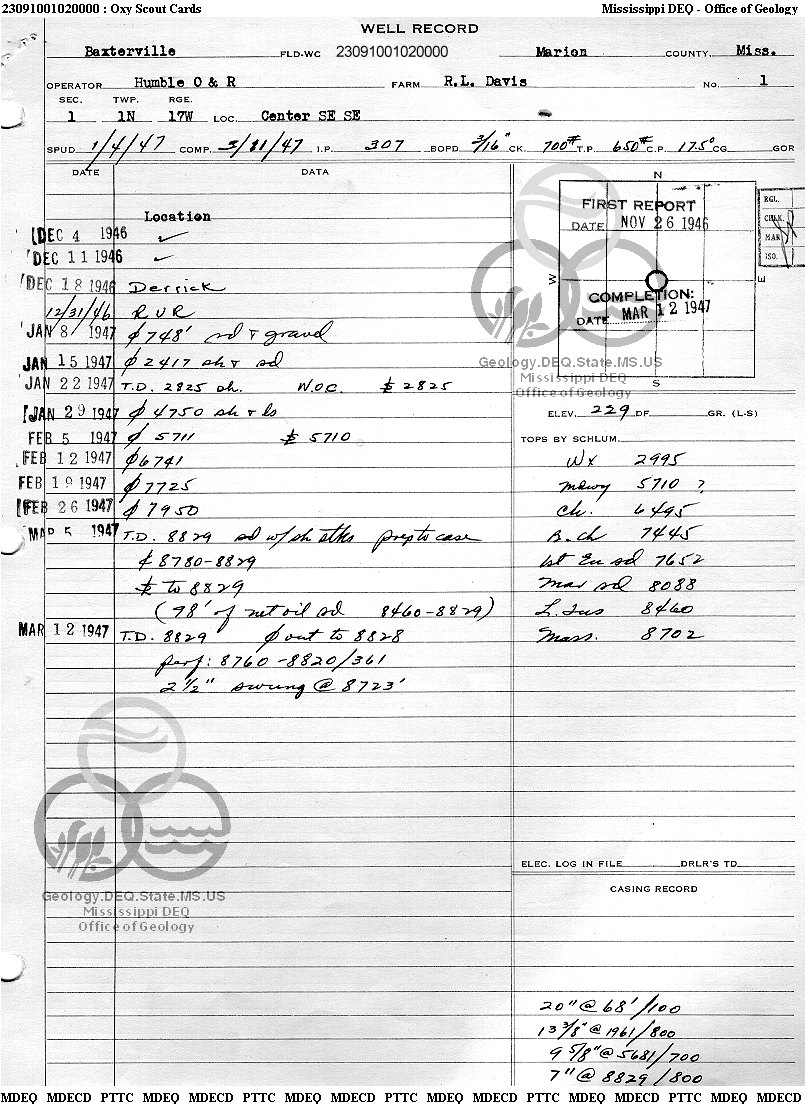 23091001020000 : Oxy Scout Cards Mississippi DEQ - Office of Geology
WELL RECORD
Baxterville FLD-WC 23091001020000 Marion COUNTY, Miss.
OPERATOR Humble O & R FARM R.L. Davis No. 1
SEC. TWP. RGE.
1 1N 17W LOC. Center SE SE
SPUD 1/4/47 COMP. 3/11/47 I.P. 307 BOPD 3/16" CK. 700# T.P. 650# C.P. 175° CG GOR
DATE DATA
N
W
E
S
FIRST REPORT
DATE: NOV 26 1946
COMPLETION:
DATE: MAR 12 1947
RGL.
CHLK.
MAR
ISO.
Location
DEC 4 1946 ✓
DEC 11 1946 ✓
DEC 18 1946 Derrick
12/31/46 RUR
JAN 8 1947 ∮ 748' sd & gravel
JAN 15 1947 ∮ 2417 sh & sd
JAN 22 1947 T.D. 2825 sh. W.O.C. 2825
JAN 29 1947 ∮ 4750 sh & ls
FEB 5 1947 ∮ 5711 5710
FEB 12 1947 ∮ 6741
FEB 19 1947 ∮ 7725
FEB 26 1947 ∮ 7950
MAR 5 1947 T.D. 8829 sd w/ sh stks prep to case
8780-8829
to 8829
(78' of net oil sd 8460-8829)
MAR 12 1947 T.D. 8829 ∮ out to 8828
perf: 8760-8820/361
2 1/2" swung @ 8723'
Geology.DEQ.State.MS.US
Mississippi DEQ
Office of Geology
ELEV. 229 DF. GR. (L-S)
TOPS BY SCHLUM.
Wx 2995
mdwy 5710 ?
Ch. 6495
B. ch 7445
1st Eu sd 7652
Mar sd 8088
L. Tus 8460
Mass. 8702
Geology.DEQ.State.MS.US
Mississippi DEQ
Office of Geology
ELEC. LOG IN FILE DRLR'S TD
CASING RECORD
20" @ 68'/100
13 3/8" @ 1961/800
9 5/8" @ 5681/700
7" @ 8829/800
MDEQ MDECD PTTC MDEQ MDECD PTTC MDEQ MDECD PTTC MDEQ MDECD PTTC MDEQ MDECD PTTC MDEQ MDECD